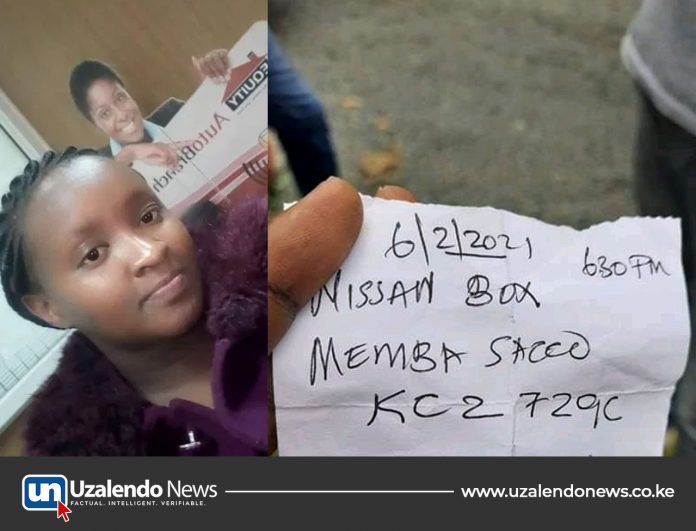 EQUITY
AutoBranch
6/2/2021
630PM
NISSAN BOX
MEMBA SACCO
KC2 729C
un Uzalendo News
FACTUAL. INTELLIGENT. VERIFIABLE.
www.uzalendonews.co.ke